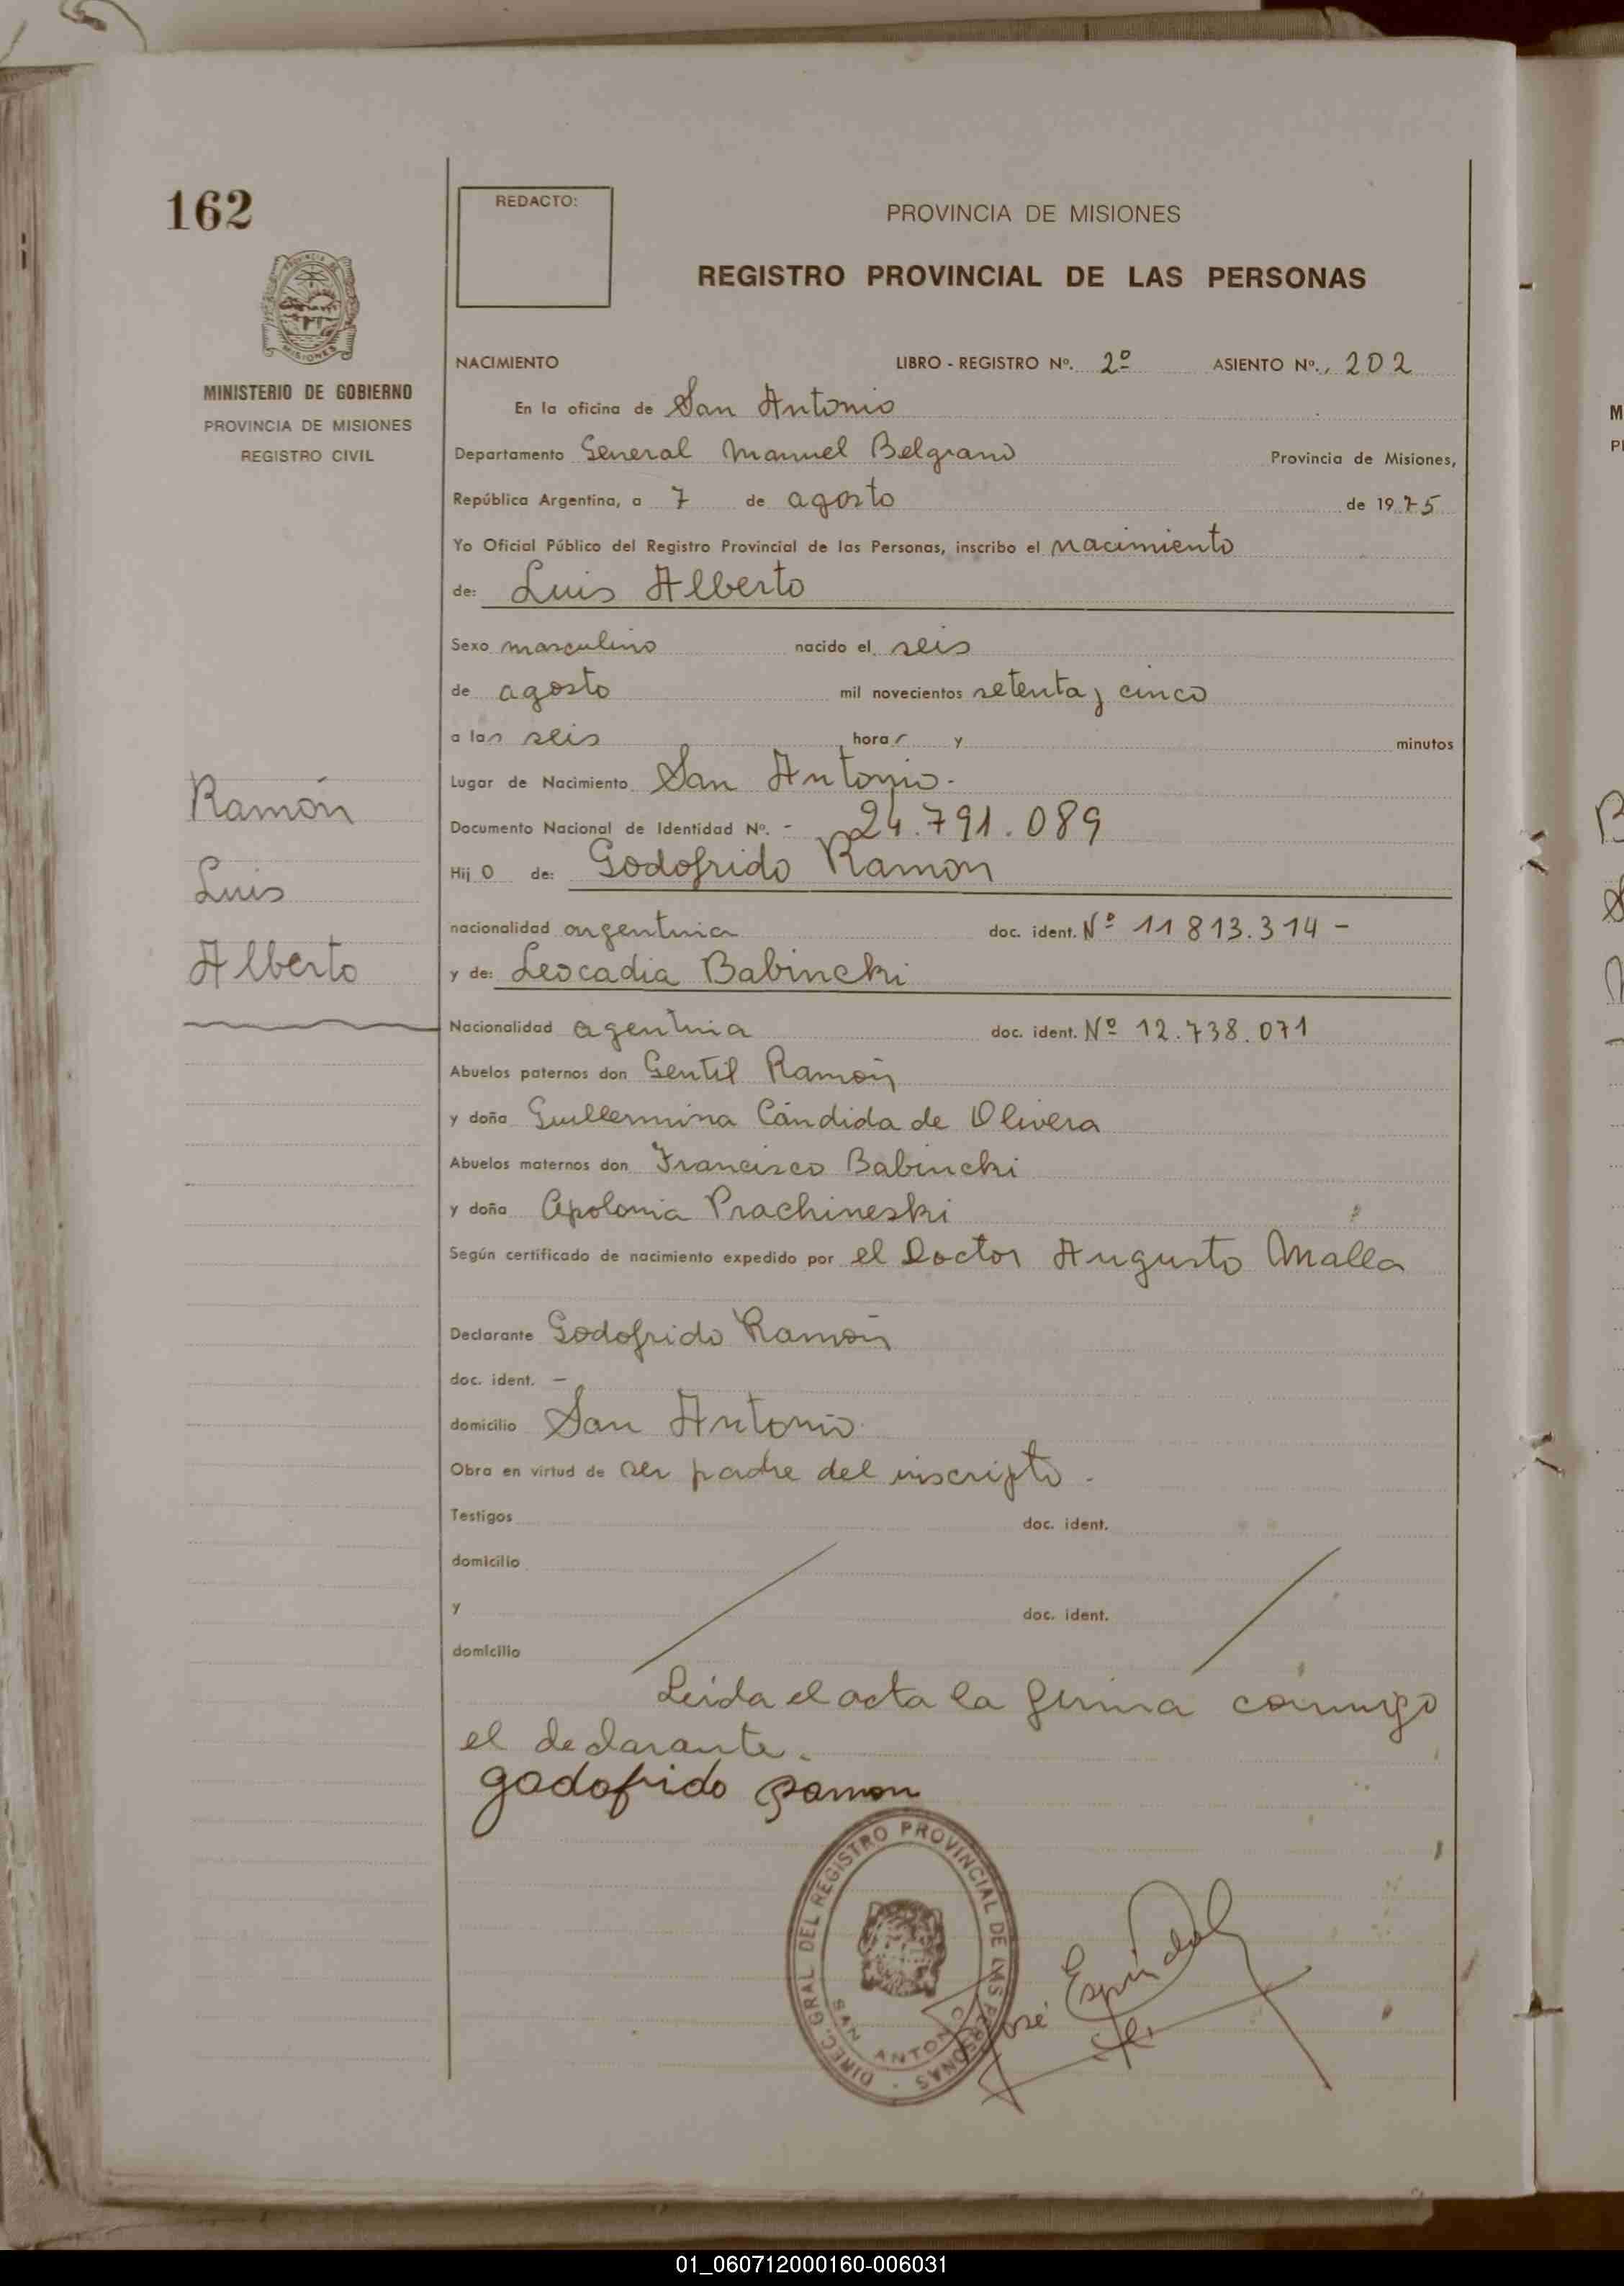 162
REDACTO:
PROVINCIA DE MISIONES
REGISTRO PROVINCIAL DE LAS PERSONAS
PROVINCIA DE MISIONES
MINISTERIO DE GOBIERNO
PROVINCIA DE MISIONES
REGISTRO CIVIL
NACIMIENTO LIBRO - REGISTRO Nº. 2º ASIENTO Nº. 202
En la oficina de San Antonio
Departamento General Manuel Belgrano Provincia de Misiones,
República Argentina, a 7 de agosto de 1975
Yo Oficial Público del Registro Provincial de las Personas, inscribo el nacimiento
de: Luis Alberto
Sexo masculino nacido el seis
de agosto mil novecientos setenta y cinco
a las seis horas y minutos
Lugar de Nacimiento San Antonio.
Documento Nacional de Identidad Nº. - 24.791.089
Hijo de: Godofrido Ramon
nacionalidad argentina doc. ident. Nº 11813.314 -
y de: Leocadia Babincki
Nacionalidad agentina doc. ident. Nº 12.738.071
Abuelos paternos don Gentil Ramón
y doña Guillermina Cándida de Olivera
Abuelos maternos don Francisco Babincki
y doña Apolonia Prachineski
Según certificado de nacimiento expedido por el Doctor Augusto Malla
Declarante Godofrido Ramón
doc. ident. -
domicilio San Antonio.
Obra en virtud de ser padre del inscripto -
Testigos doc. ident.
domicilio
y doc. ident.
domicilio
Leida el acta la firma conmigo
el declarante.
godofrido Ramon
Ramón
Luis
Alberto
DIREC. GRAL. DEL REGISTRO PROVINCIAL DE LAS PERSONAS
SAN ANTONIO
José Espindol
01_060712000160-006031